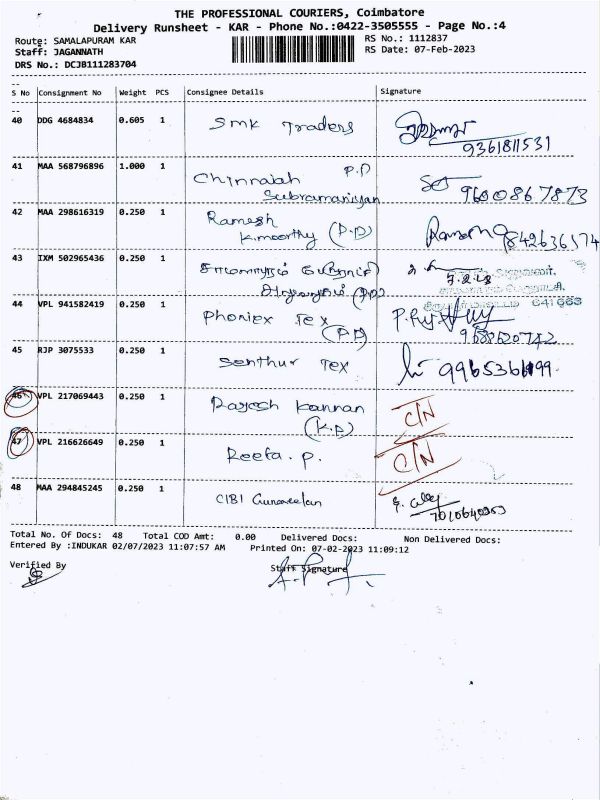 THE PROFESSIONAL COURIERS, Coimbatore
Delivery Runsheet - KAR - Phone No.:0422-3505555 - Page No.:4
Route: SAMALAPURAM KAR RS No.: 1112837
Staff: JAGANNATH RS Date: 07-Feb-2023
DRS No.: DCJB111283704
S No Consignment No Weight PCS Consignee Details Signature
40 DDG 4684834 0.605 1 SMK Traders
9361811531
41 MAA 568796896 1.000 1 Chinnaiah P.D
Subramaniyan 9600867873
42 MAA 298616319 0.250 1 Ramesh
K.moorthy (P.D) 9842636574
43 IXM 502965436 0.250 1 சாமளாபுரம் பேரூராட்சி
அலுவலகம் (P.D)
641663
44 VPL 941582419 0.250 1 Phoniex Tex
(P.D)
45 RJP 3075533 0.250 1 Senthur Tex
46 VPL 217069443 0.250 1 Rajesh Kannan C/N
(K.P)
47 VPL 216626649 0.250 1 Reeta. P. C/N
48 MAA 294845245 0.250 1 CIBI Gunaseelan
Total No. Of Docs: 48 Total COD Amt: 0.00 Delivered Docs: Non Delivered Docs:
Entered By :INDUKAR 02/07/2023 11:07:57 AM Printed On: 07-02-2023 11:09:12
Verified By Staff Signature